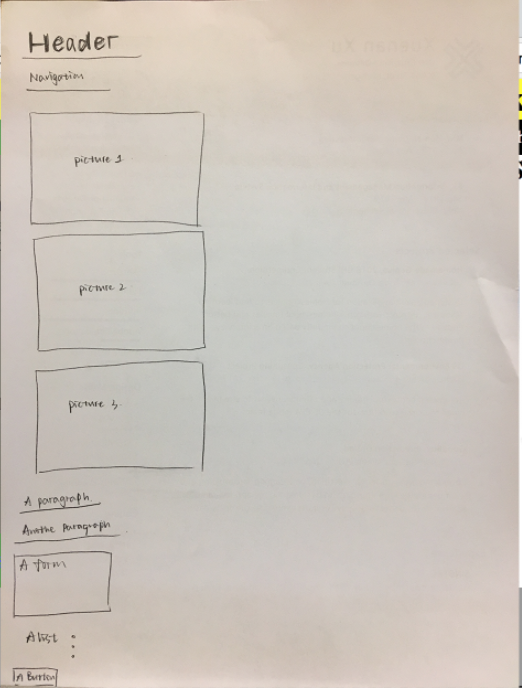 Header
Navigation
picture 1
picture 2
picture 3
A paragraph
Anothe Paragraph
A form
A list
A Button